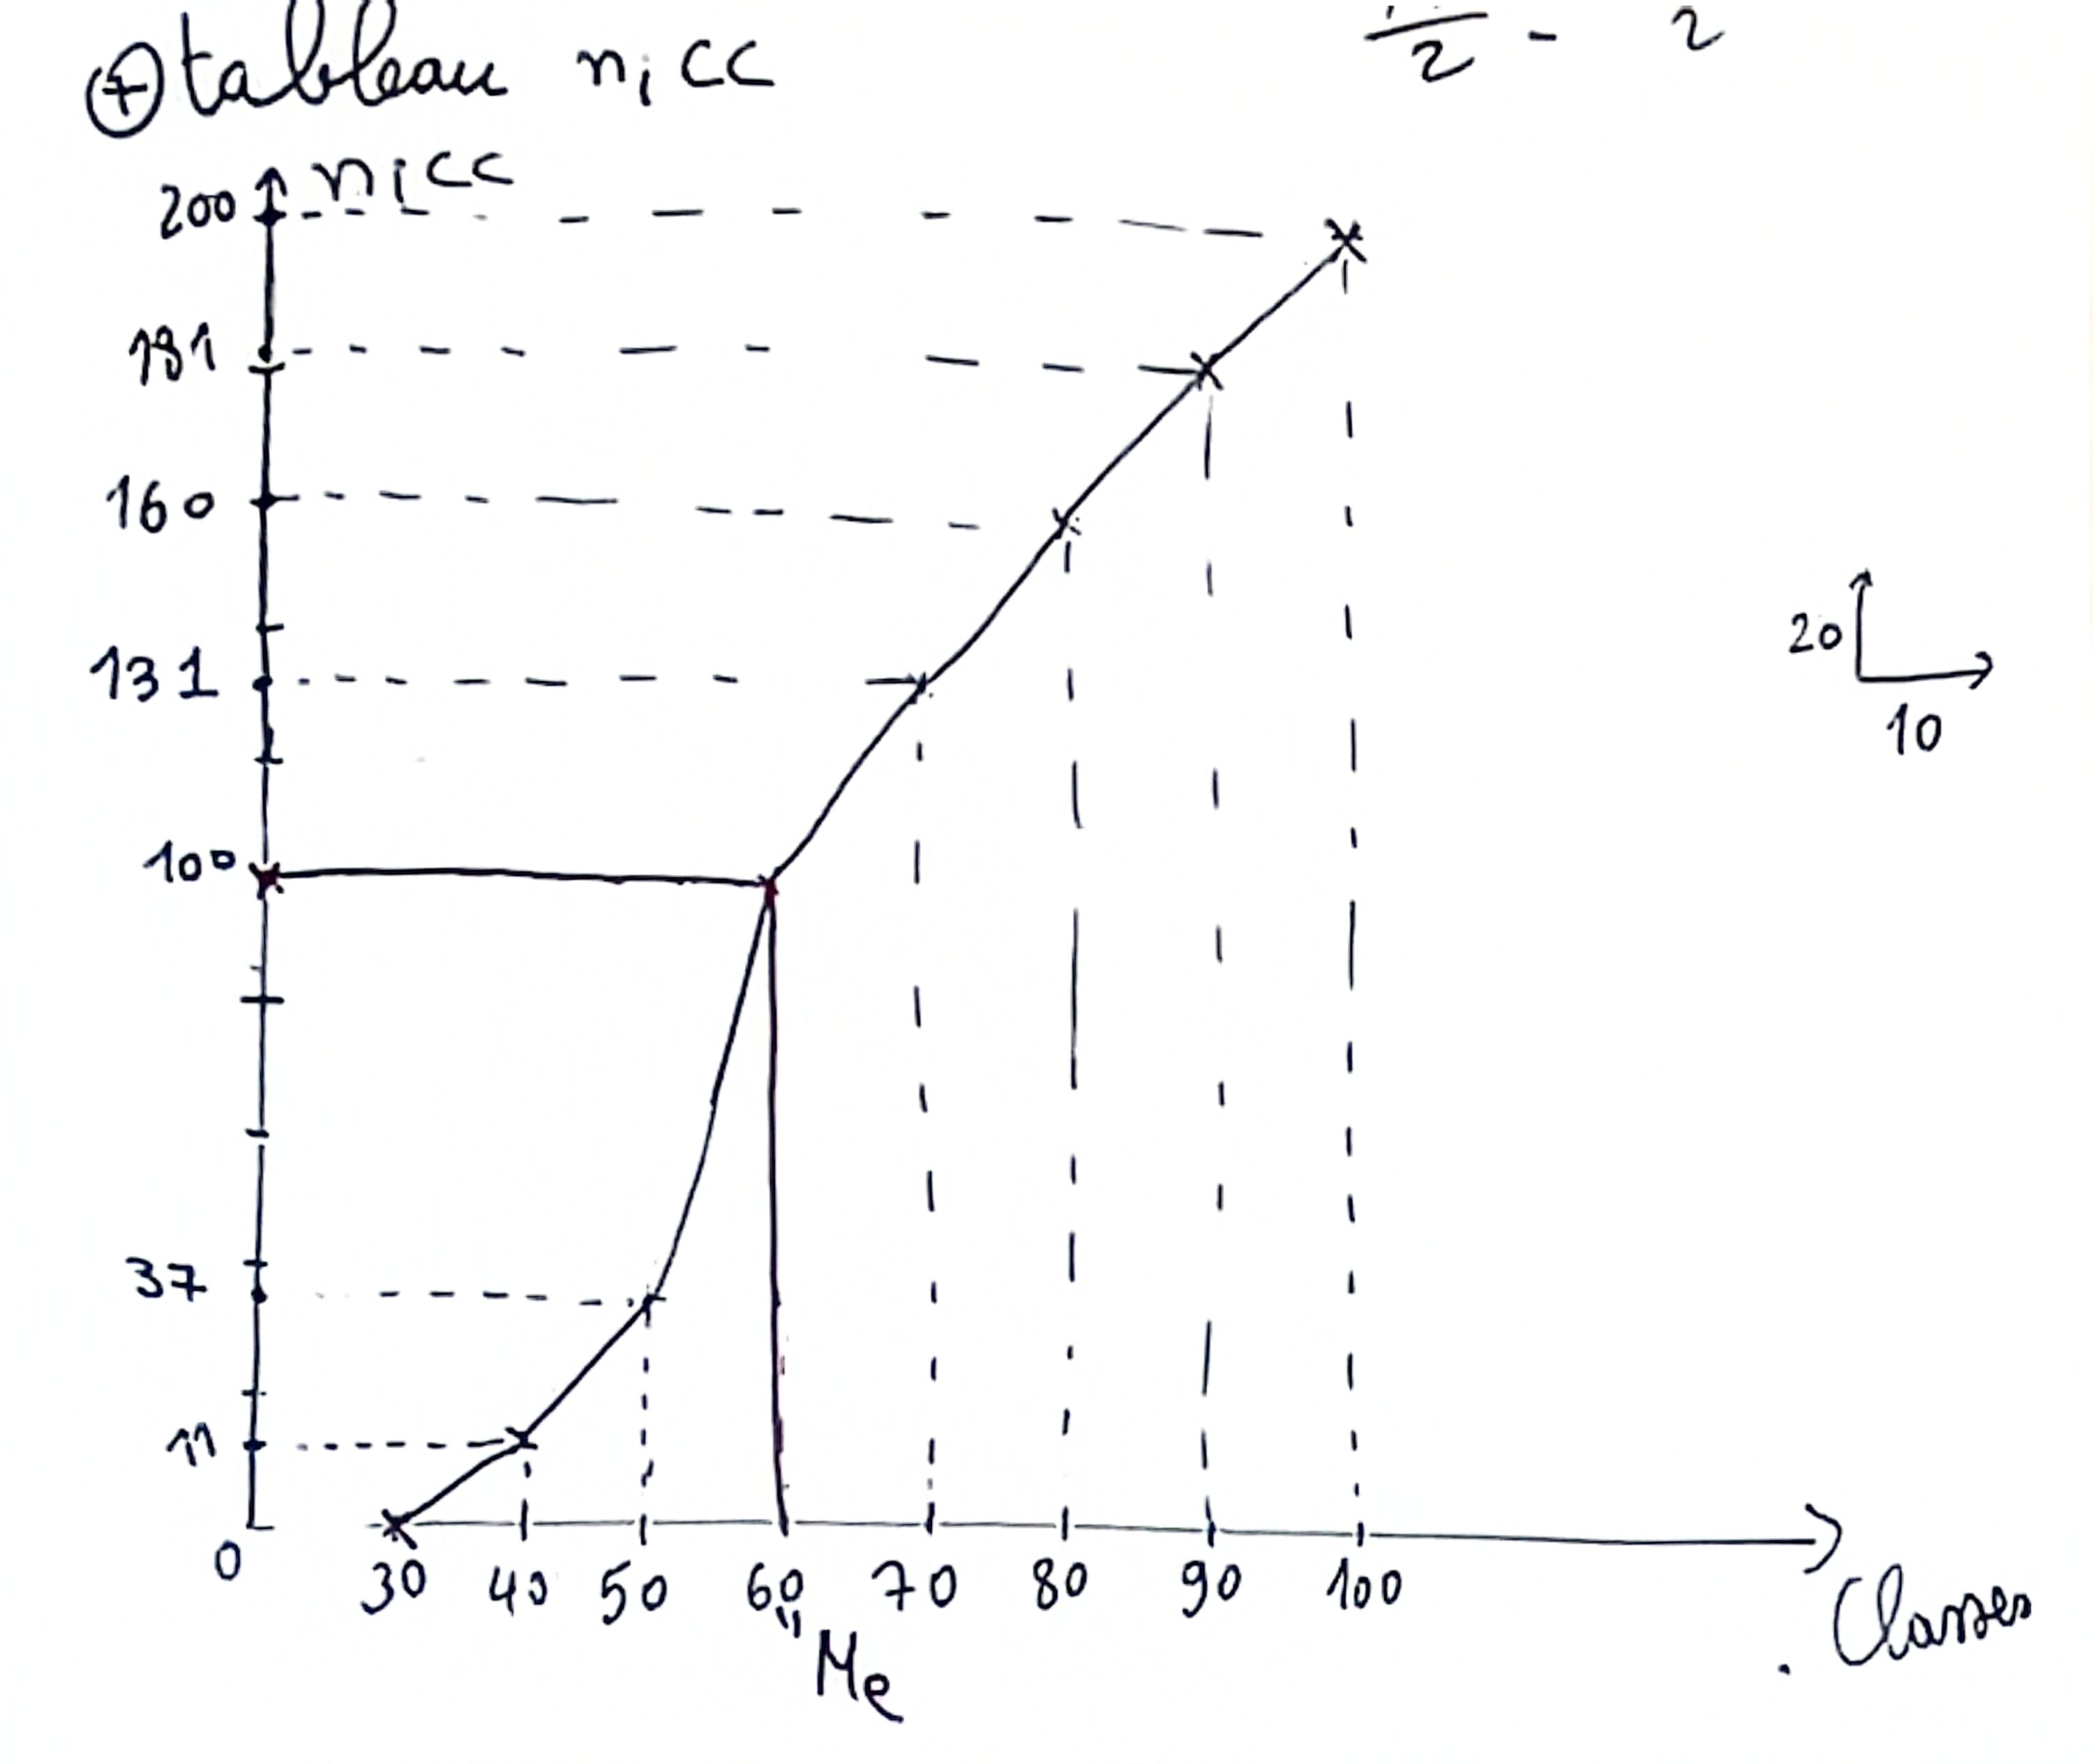 ⊕ tableau nicc
2 - 2
nicc
200
181
160
131
20
10
100
37
11
0
30 40 50 60 70 80 90 100
"
Me
Classes